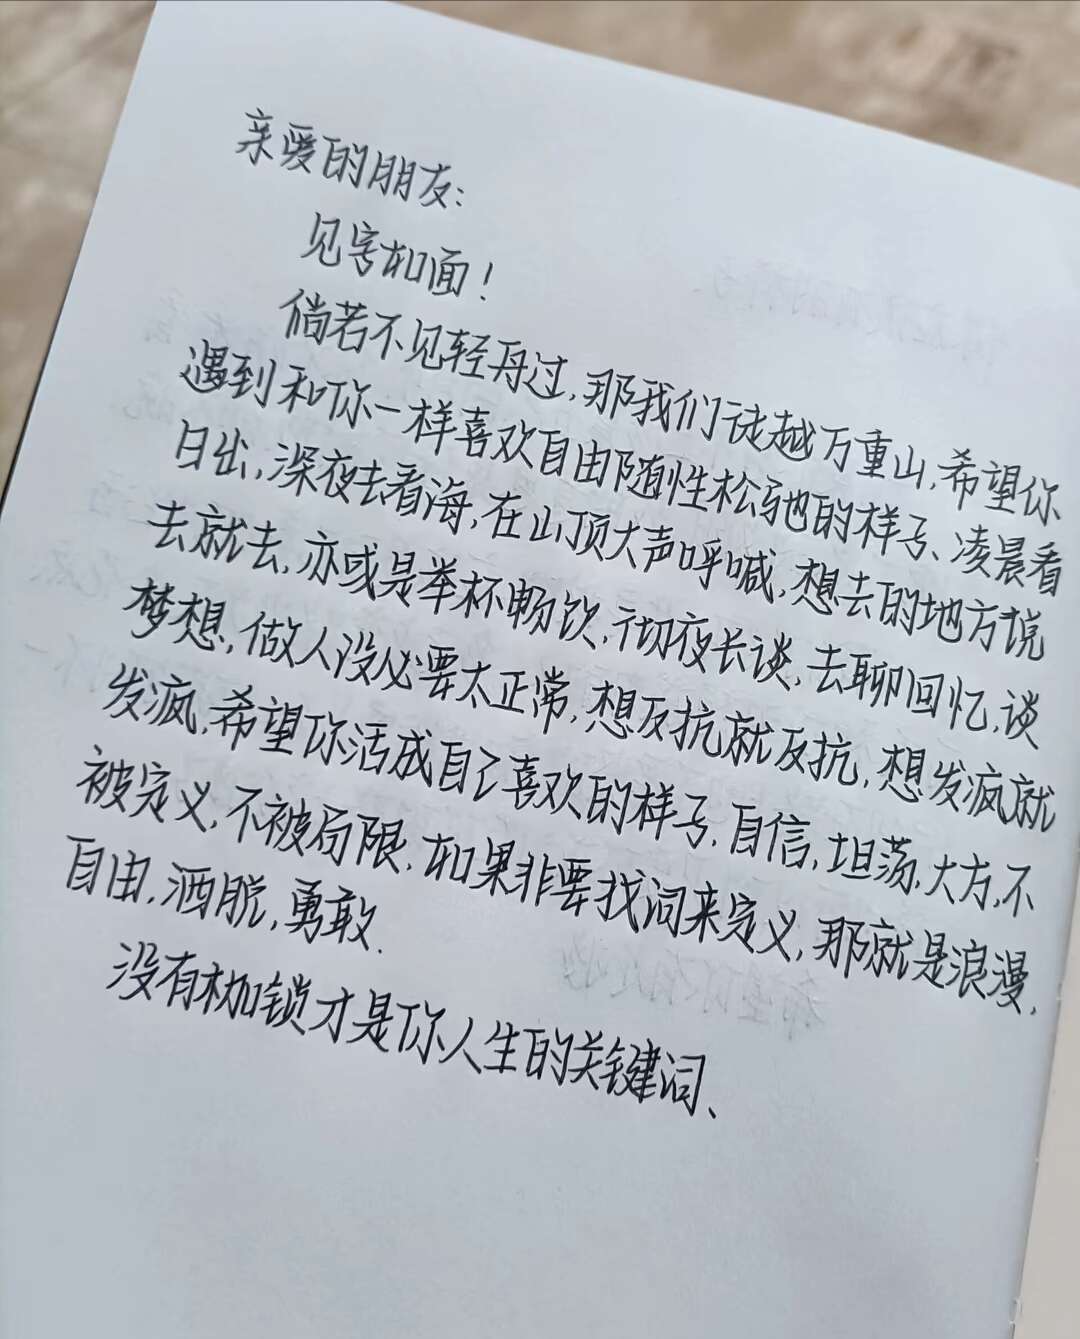 亲爱的朋友:
见字如面!
倘若不见轻舟过,那我们徒越万重山,希望你
遇到和你一样喜欢自由随性松驰的样子、凌晨看
日出,深夜去看海,在山顶大声呼喊,想去的地方说
去就去,亦或是举杯畅饮,彻夜长谈,去聊回忆,谈
梦想,做人没必要太正常,想反抗就反抗,想发疯就
发疯,希望你活成自己喜欢的样子,自信,坦荡,大方,不
被定义,不被局限,如果非要找词来定义,那就是浪漫,
自由,洒脱,勇敢.
没有枷锁才是你人生的关键词、